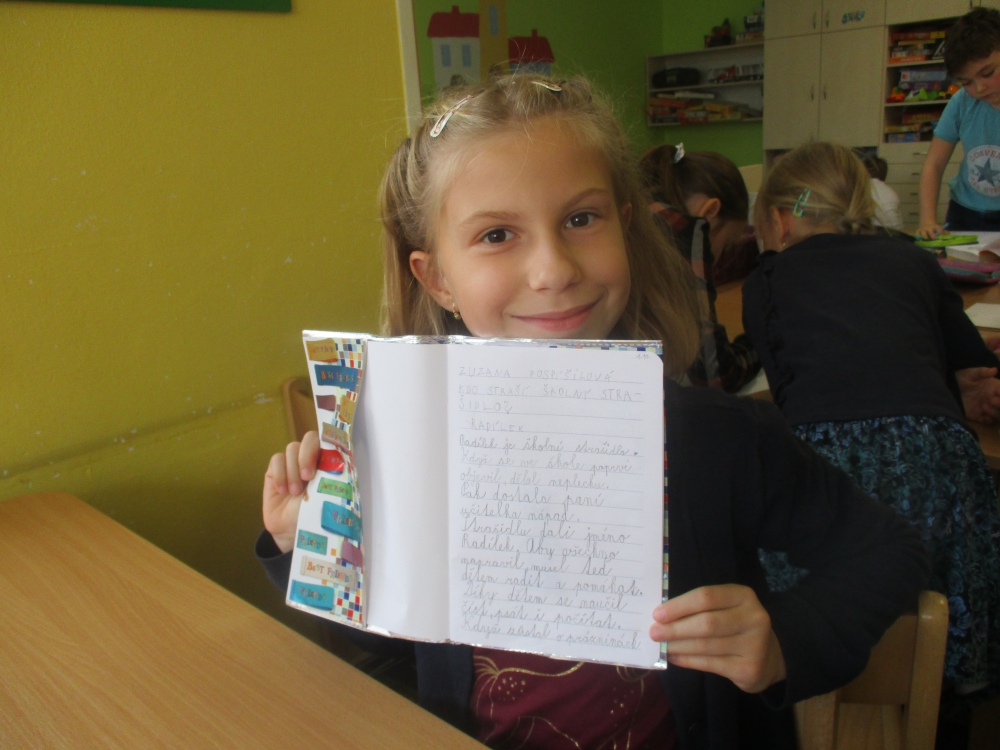 ZUZANA POSPÍŠILOVÁ
KDO STRAŠÍ ŠKOLNÍ STRA-
ŠIDLO?
RADÍLEK
Radílek je školní strašidlo.
Když se ve škole poprvé
objevil, dělal neplechu.
Pak dostala paní
učitelka nápad.
Strašidlu dali jméno
Radílek. Aby všechno
napravil, musel teď
dětem radit a pomáhat.
Díky dětem se naučil
číst, psát i počítat.
Když zůstal o prázdninách
BEST FRIENDS